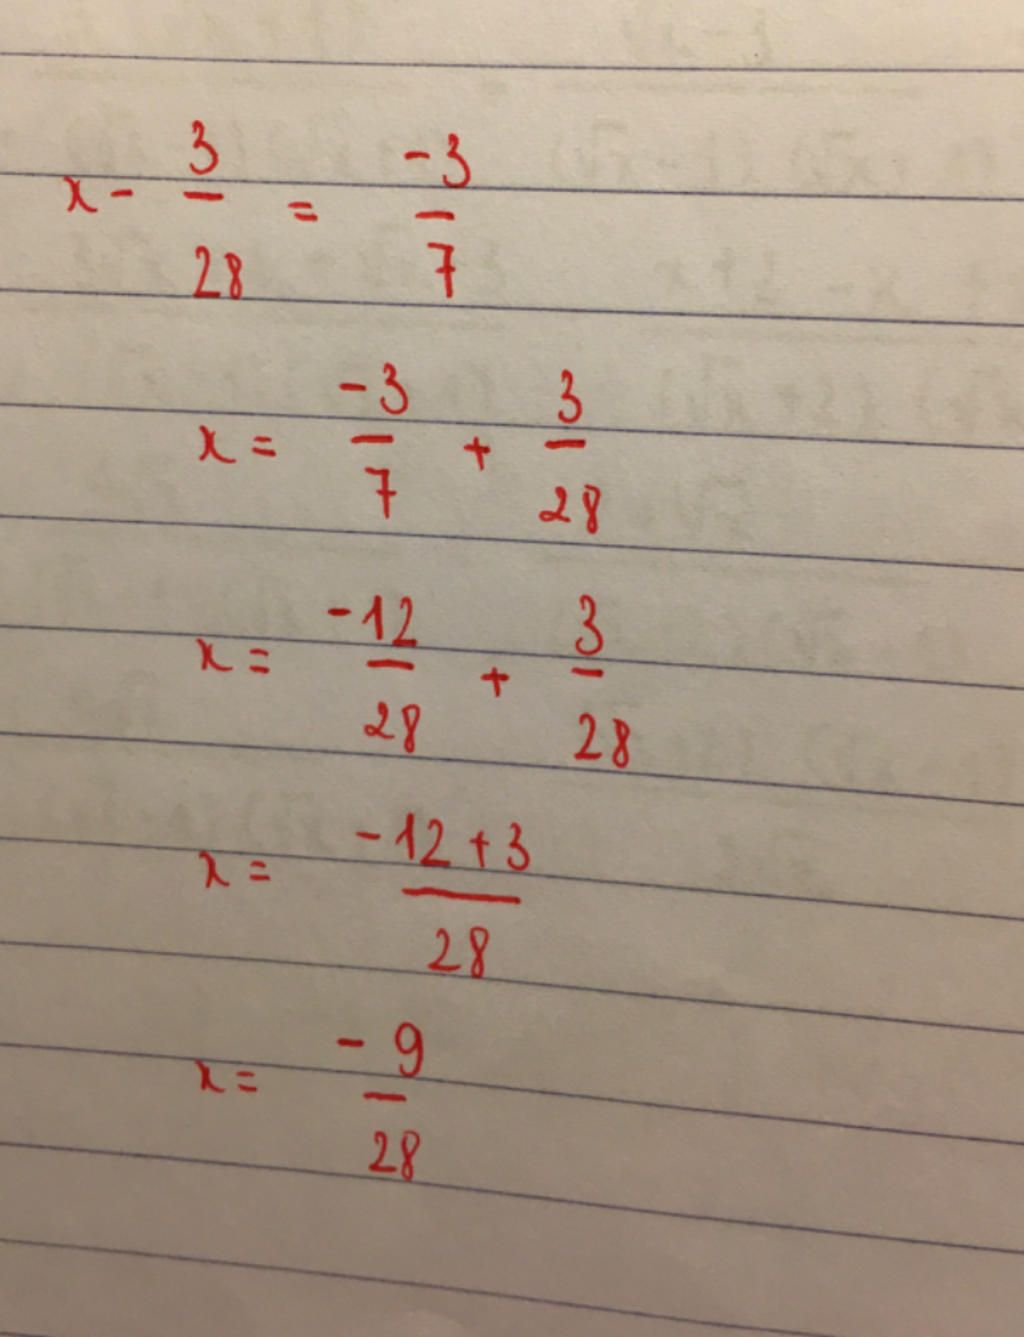 x - 3/28 = -3/7
x = -3/7 + 3/28
x = -12/28 + 3/28
x = -12+3/28
x = -9/28